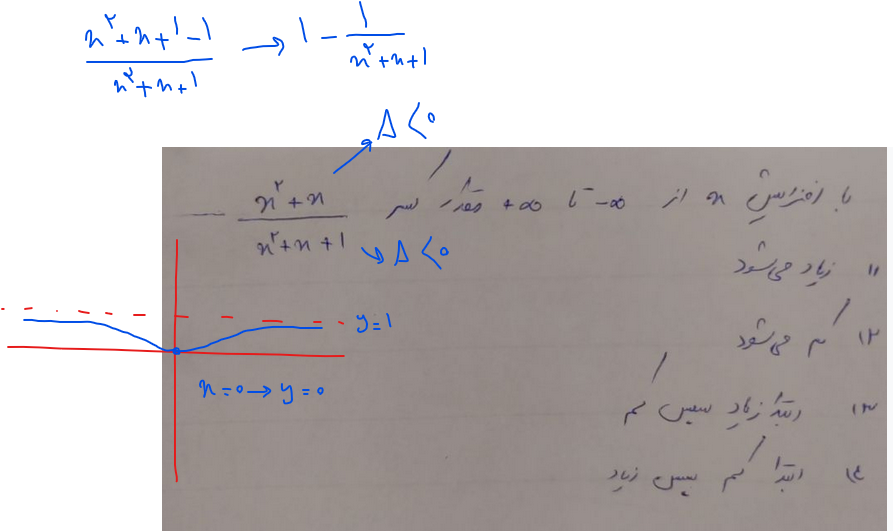 x²+x+1-1 / x²+x+1 → 1 - 1 / x²+x+1
Δ<0
با افزایش x از -∞ تا +∞ مقدار کسر x²+x / x²+x+1
Δ<0
۱) زیاد می‌شود
y=1
۲) کم می‌شود
x=0 → y=0
۳) ابتدا زیاد سپس کم
۴) ابتدا کم سپس زیاد